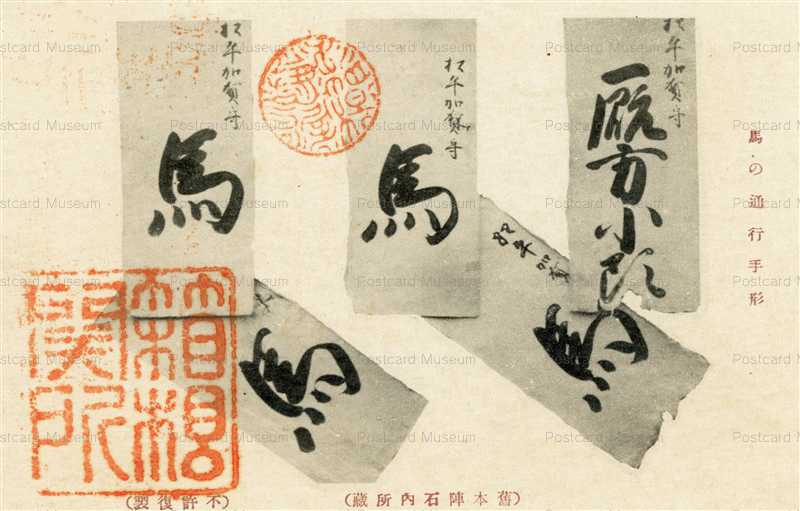 馬の通行手形
松平加賀守
厩方小頭
松平加賀守
馬
松平加賀守
馬
松平加賀
馬
馬
箱根
関所
(舊本陣石内所藏)
(不許復製)
Postcard Museum